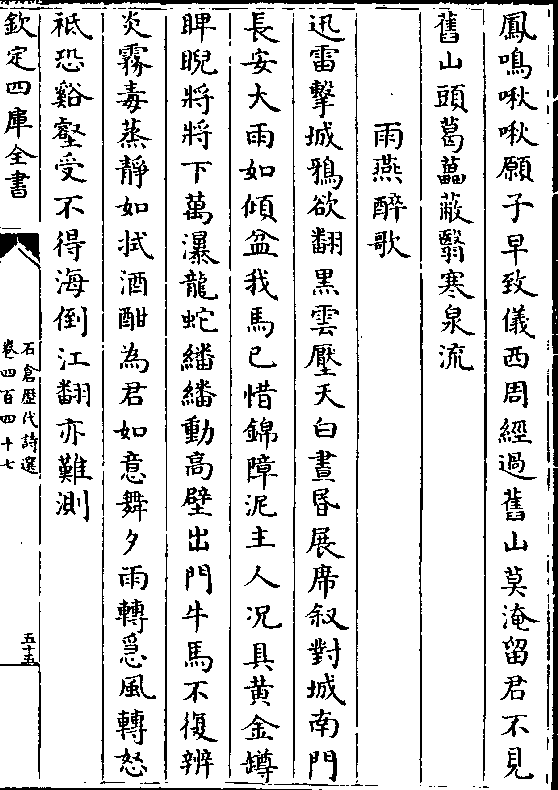 鳳鳴啾啾願子早致儀西周經過舊山莫淹留君不見
舊山頭葛藟蔽翳寒泉流
雨燕醉歌
迅雷擊城鴉欲翻黒雲壓天白晝昏展席叙對城南門
長安大雨如傾盆我馬已惜錦障泥主人况具黄金罇
睥睨將將下萬瀑龍蛇繙繙動高壁出門牛馬不復辨
炎霧毒蒸靜如拭酒酣為君如意舞夕雨轉急風轉怒
祗恐谿壑受不得海倒江翻亦難測
欽定四庫全書
石倉歴代詩選
卷四百四十七
五十五